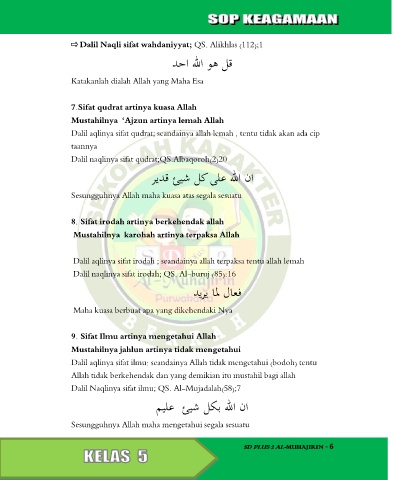 SOP KEAGAMAAN
⇨ Dalil Naqli sifat wahdaniyyat; QS. Alikhlas (112);1
قل هو الله احد
Katakanlah dialah Allah yang Maha Esa
7.Sifat qudrat artinya kuasa Allah
Mustahilnya ‘Ajzun artinya lemah Allah
Dalil aqlinya sifat qudrat; seandainya allah lemah , tentu tidak akan ada cip
taannya
Dalil naqlinya sifat qudrat;QS.Albaqoroh;2;20
ان الله على كل شيئ قدير
Sesungguhnya Allah maha kuasa atas segala sesuatu
8. Sifat irodah artinya berkehendak allah
Mustahilnya karohah artinya terpaksa Allah
Dalil aqlinya sifat irodah ; seandainya allah terpaksa tentu allah lemah
Dalil naqlinya sifat irodah; QS. Al-buruj (85);16
فعال لما يريد
Maha kuasa berbuat apa yang dikehendaki Nya
9. Sifat Ilmu artinya mengetahui Allah
Mustahilnya jahlun artinya tidak mengetahui
Dalil aqlinya sifat ilmu; seandainya Allah tidak mengetahui (bodoh) tentu
Allah tidak berkehendak dan yang demikian itu mustahil bagi allah
Dalil Naqlinya sifat ilmu; QS. Al-Mujadalah(58);7
ان الله بكل شيئ عليم
Sesungguhnya Allah maha mengetahui segala sesuatu
SD PLUS 2 AL-MUHAJIRIN - 6
KELAS 5
SEKOLAH KARAKTER
Al-Muhajirin
Purwakarta